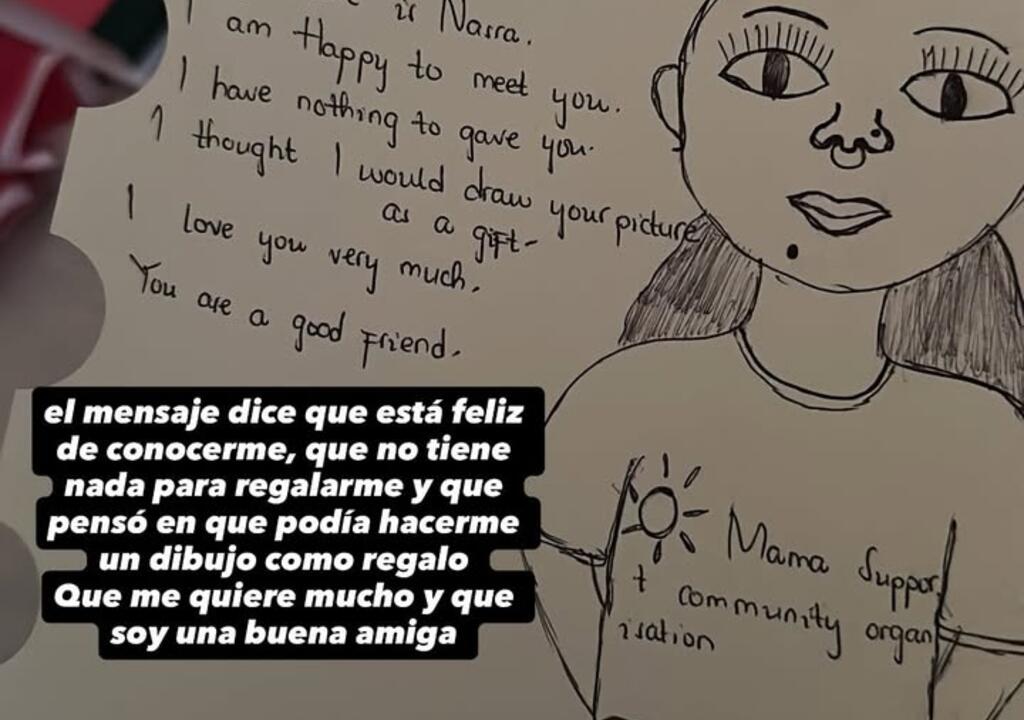 is Narra.
I am Happy to meet you.
I have nothing to gave you.
I thought I would draw your picture
as a gift-
I love you very much.
You are a good Friend.
el mensaje dice que está feliz
de conocerme, que no tiene
nada para regalarme y que
pensó en que podía hacerme
un dibujo como regalo
Que me quiere mucho y que
soy una buena amiga
Mama Suppor
t community organ
isation